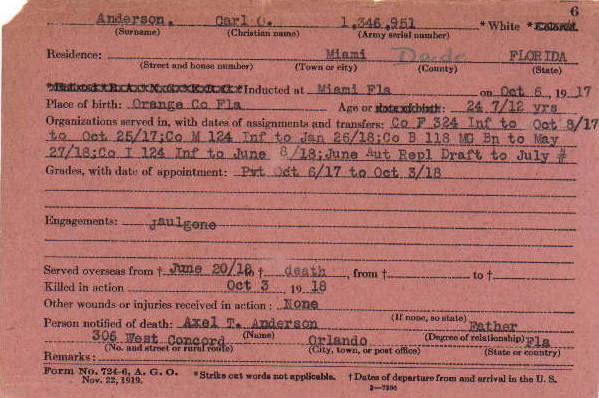 6
Anderson, Carl O. 1,346,951 *White *Colored
(Surname) (Christian name) (Army serial number)
Residence: Miami Dade FLORIDA
(Street and house number) (Town or city) (County) (State)
Inducted at Miami Fla on Oct 6, 1917
Place of birth: Orange Co Fla Age or date of birth: 24 7/12 yrs
Organizations served in, with dates of assignments and transfers: Co F 324 Inf to Oct 8/17
to Oct 25/17;Co M 124 Inf to Jan 26/18;Co B 118 MG Bn to May
27/18;Co I 124 Inf to June 8/18;June Aut Repl Draft to July #
Grades, with date of appointment: Pvt Oct 6/17 to Oct 3/18
Engagements: Jaulgone
Served overseas from † June 20/18 to † death, from † to †
Killed in action Oct 3 1918
Other wounds or injuries received in action: None
(If none, so state)
Person notified of death: Axel T. Anderson Father
(Name) (Degree of relationship)
306 West Concord Orlando Fla
(No. and street or rural route) (City, town, or post office) (State or country)
Remarks:
Form No. 724-6, A. G. O. *Strike out words not applicable. †Dates of departure from and arrival in the U. S.
Nov. 22, 1919.